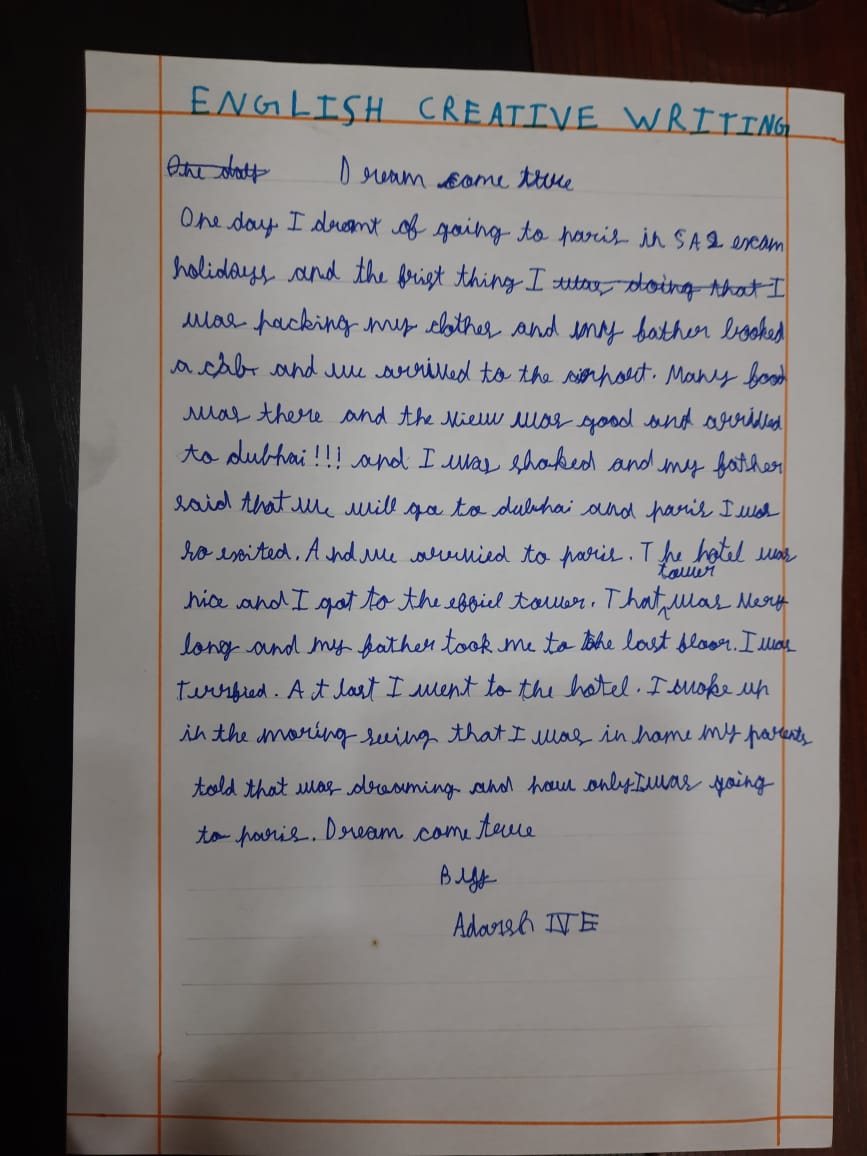 ENGLISH CREATIVE WRITING
Dream come true
One day I dreamt of going to paris in SA2 exam
holidays and the frist thing I was doing that I
was packing my clothes and my father booked
a cab and we arrived to the airport. Many food
was there and the view was good and arrived
to dubhai!!! and I was shoked and my father
said that we will go to dubhai and paris I was
so exited. And we arrived to paris. The hotel was
tower
nice and I got to the effiel tower. That was very
long and my father took me to the last floor. I was
Terrified. At last I went to the hotel. I woke up
in the moring seeing that I was in home my parents
told that was dreaming and how only I was going
to paris. Dream come true
By
Adarsh IV E